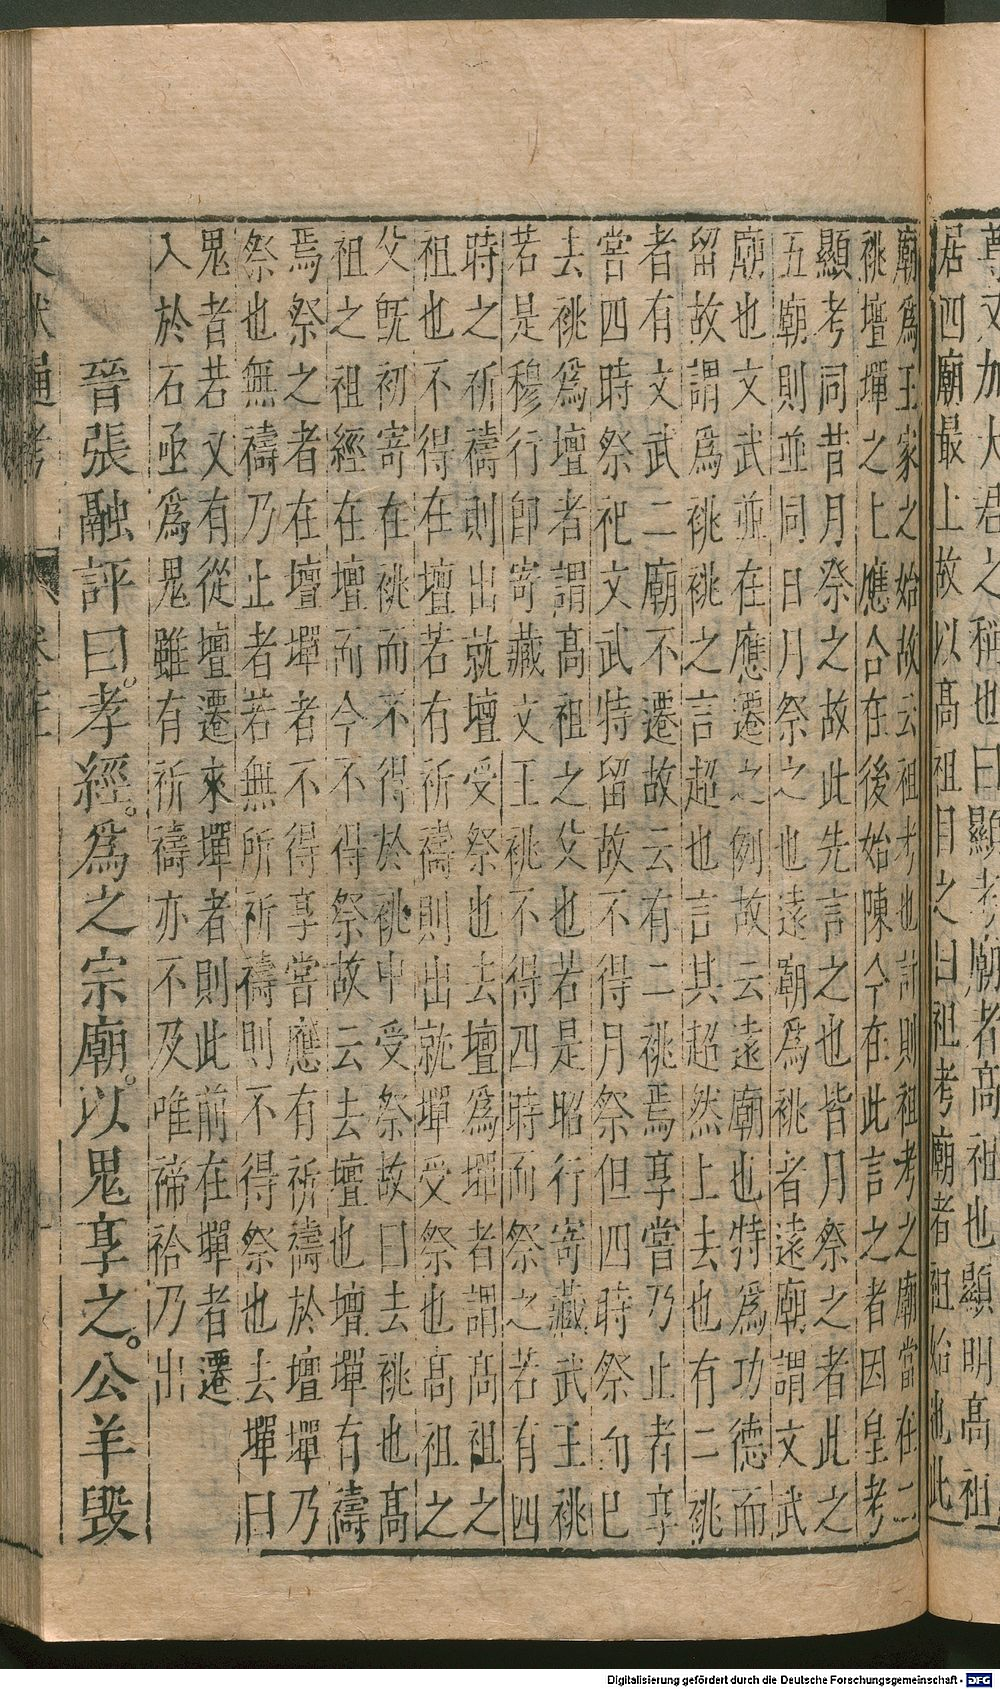 尊文加大君之稱也曰顯考廟者高祖也顯明高祖
居四廟最上故以高祖目之曰祖考廟者祖始也此
廟爲王家之始故云祖考也計則祖考之廟當在二
祧壇墠之上應合在後始陳今在此言之者因皇考
顯考同昔月祭之故此先言之也皆月祭之者此之
五廟則並同日月祭之也遠廟爲祧者遠廟謂文武
廟也文武並在應遷之例故云遠廟也特爲功德而
留故謂爲祧祧之言超也言其超然上去也有二祧
者有文武二廟不遷故云有二祧焉享嘗乃止者享
嘗四時祭祀文武特留故不得月祭但四時祭而已
去祧爲壇者謂髙祖之父也若是昭行寄藏武王祧
若是穆行即寄藏文王祧不得四時而祭之若有四
時之祈禱則出就壇受祭也去壇爲墠者謂髙祖之
祖也不得在壇若有祈禱則出就墠受祭也髙祖之
父旣初寄在祧而不得於祧中受祭故曰去祧也髙
祖之祖經在壇而今不得祭故云去壇也壇墠有禱
焉祭之者在壇墠者不得享嘗應有祈禱於壇墠乃
祭也無禱乃止者若無所祈禱則不得祭也去墠曰
鬼者若又有從壇遷來墠者則此前在墠者遷
入於石亟爲鬼雖有祈禱亦不及唯禘祫乃出
晉張融評曰。孝經。爲之宗廟。以鬼享之。公羊毀
文獻通考
Digitalisierung gefördert durch die Deutsche Forschungsgemeinschaft - DFG